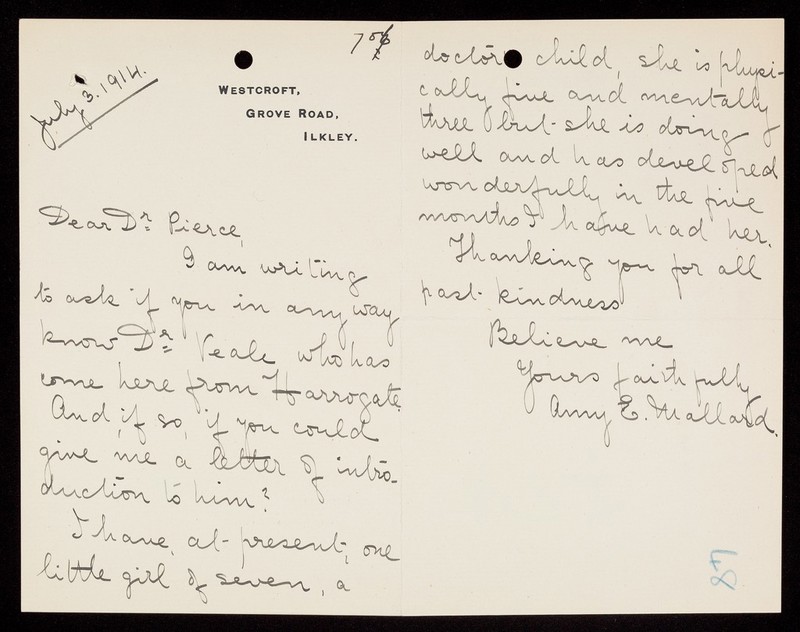 July 3. 1914.
WESTCROFT,
GROVE ROAD,
ILKLEY.
Dear Dr. Pierce,
I am writing
to ask if you in any way
know Dr. Veale who has
come here from Harrogate.
And, if so, if you could
give me a letter of intro-
duction to him?
I have, at present, one
little girl of seven, a
doctor's child, she is physi-
cally five and mentally
three but she is doing
well and has developed
wonderfully in the five
months I have had her.
Thanking you for all
past kindness
Believe me
Yours faithfully
Amy E. Mallard.
87